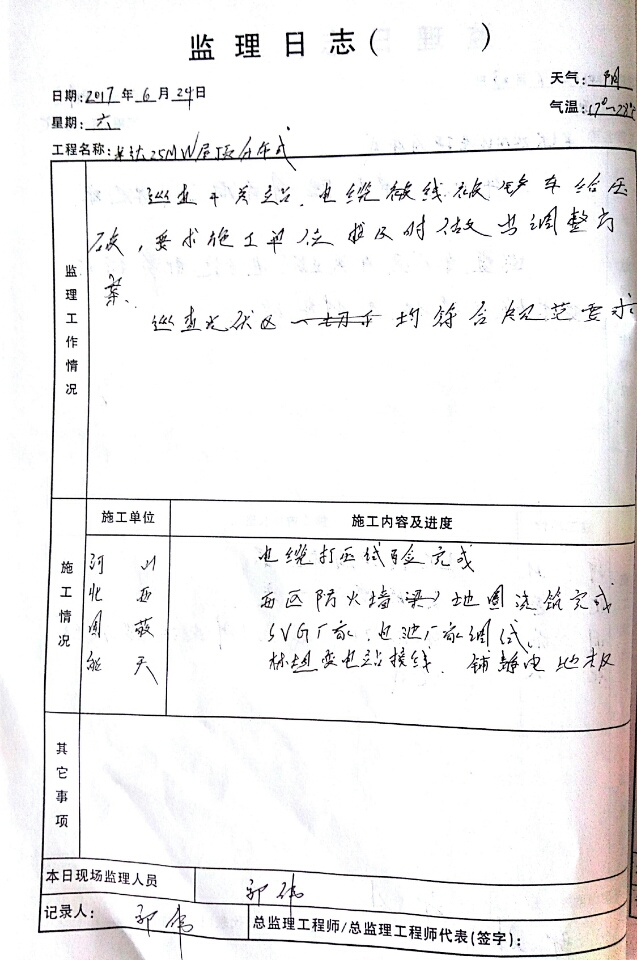 监理日志( )
日期:2017年6月24日
天气:阴
星期:六
气温:17°~28℃
工程名称:米达25MW屋顶分布式
监理工作情况
巡查开关站,电缆被线被铲车给压
破,要求施工单位及时做出调整方
案.
巡查光伏区 均符合规范要求
施工情况
施工单位
施工内容及进度
河 川
电缆打压试验完成
北 亚
西区防火墙 地圈浇筑完成
SVG厂家,电池厂家调试.
天
变电站接线. 铺静电地板
其它事项
本日现场监理人员
郭伟
记录人:郭伟
总监理工程师/总监理工程师代表(签字):